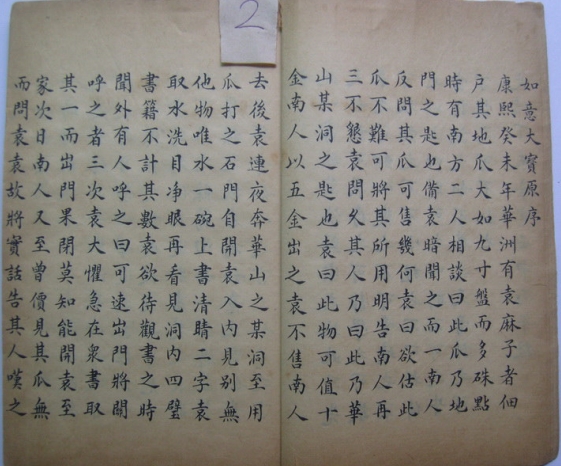 2
如意大寶原序
康熙癸未年華洲有袁麻子者佃
戶其地瓜大如九寸盤而多硃點
時有南方二人相談曰此瓜乃地
門之匙也偹袁暗聞之而一南人
反問其瓜可售幾何袁曰欲估此
瓜不難可將其所用明告南人再
三不懇袁問久其人乃曰此乃華
山某洞之匙也袁曰此物可值十
金南人以五金出之袁不售南人
去後袁連夜奔華山之某洞至用
瓜打之石門自開袁入內見別無
他物唯水一碗上書清睛二字袁
取水洗目净眼再看見洞內四壁
書籍不計其數袁欲待觀書之時
聞外有人呼之曰可速出門將關
呼之者三次袁大懼急在衆書取
其一而出門果閉莫知能開袁至
家次日南人又至曾價見其瓜無
而問袁袁故將實話告其人嘆之